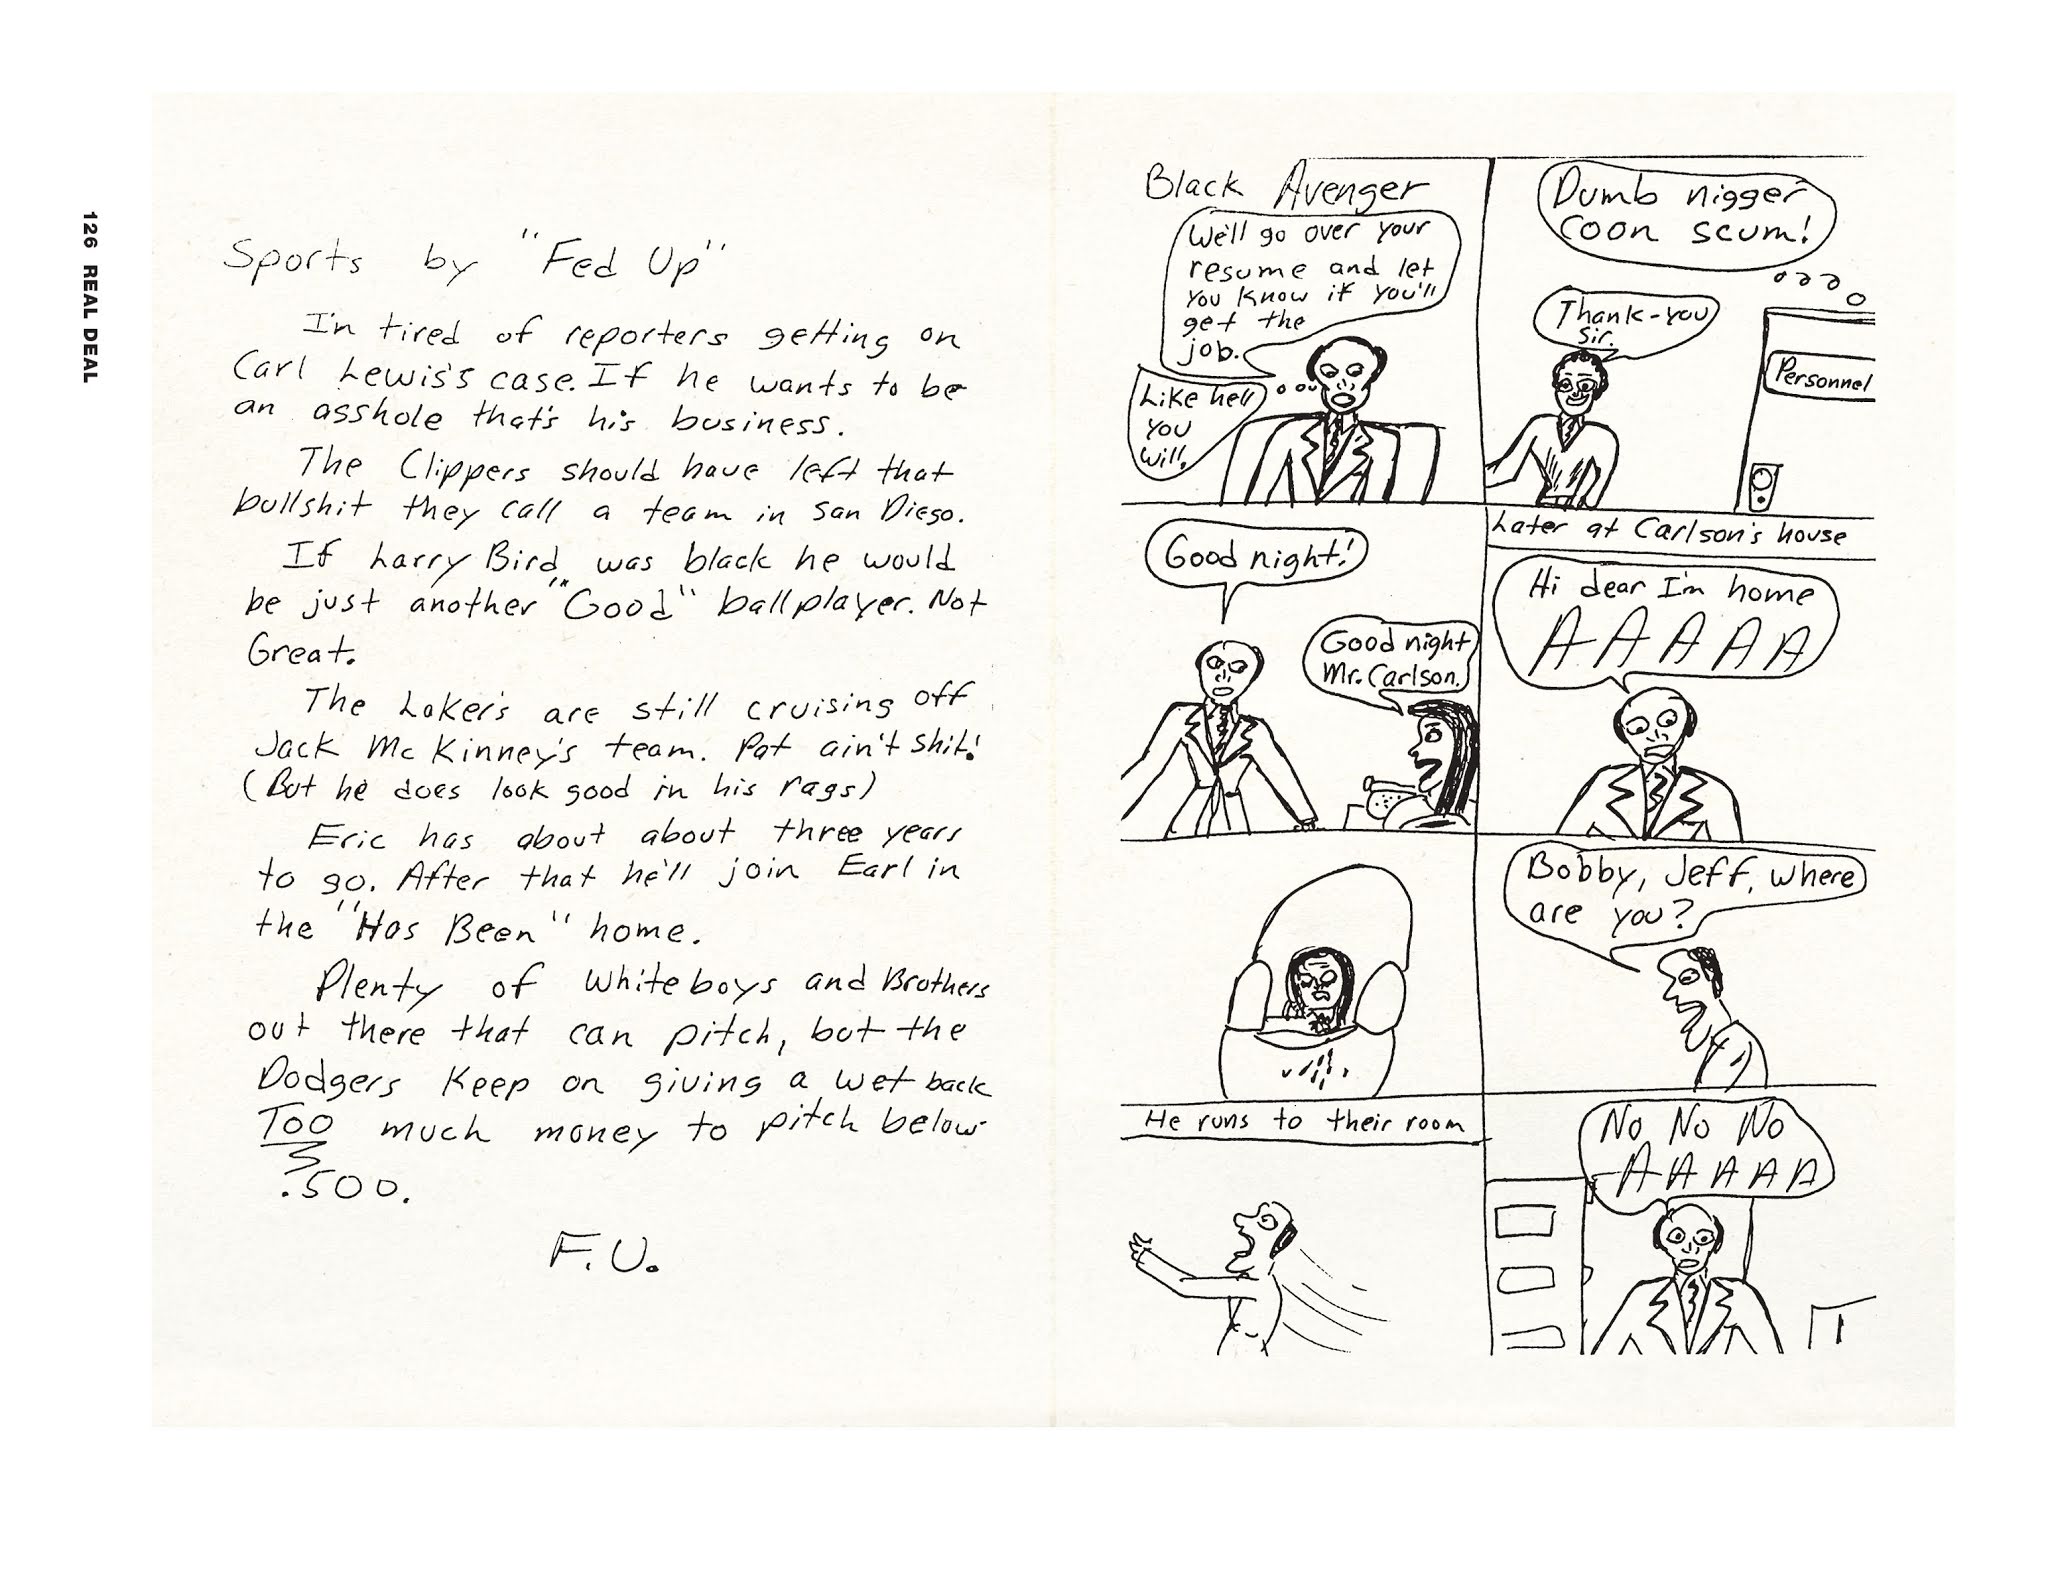 126 REAL DEAL
Sports by "Fed Up"
I'm tired of reporters getting on
Carl Lewis's case. If he wants to be
an asshole that's his business.
The Clippers should have left that
bullshit they call a team in San Diego.
If Larry Bird was black he would
be just another "Good" ballplayer. Not
Great.
The Lakers are still cruising off
Jack McKinney's team. Pat ain't shit!
(But he does look good in his rags)
Eric has about about three years
to go. After that he'll join Earl in
the "Has Been" home.
Plenty of whiteboys and Brothers
out there that can pitch, but the
Dodgers keep on giving a wet back
Too much money to pitch below
.500.
F.U.
Black Avenger
We'll go over your
resume and let
you know if you'll
get the
job.
Like hell
you
will.
Dumb nigger
coon scum!
Thank-you
sir.
Personnel
Good night!
Good night
Mr. Carlson.
Later at Carlson's house
Hi dear I'm home
AAAAA
Bobby, Jeff, where
are you?
He runs to their room
No No No
AAAAA